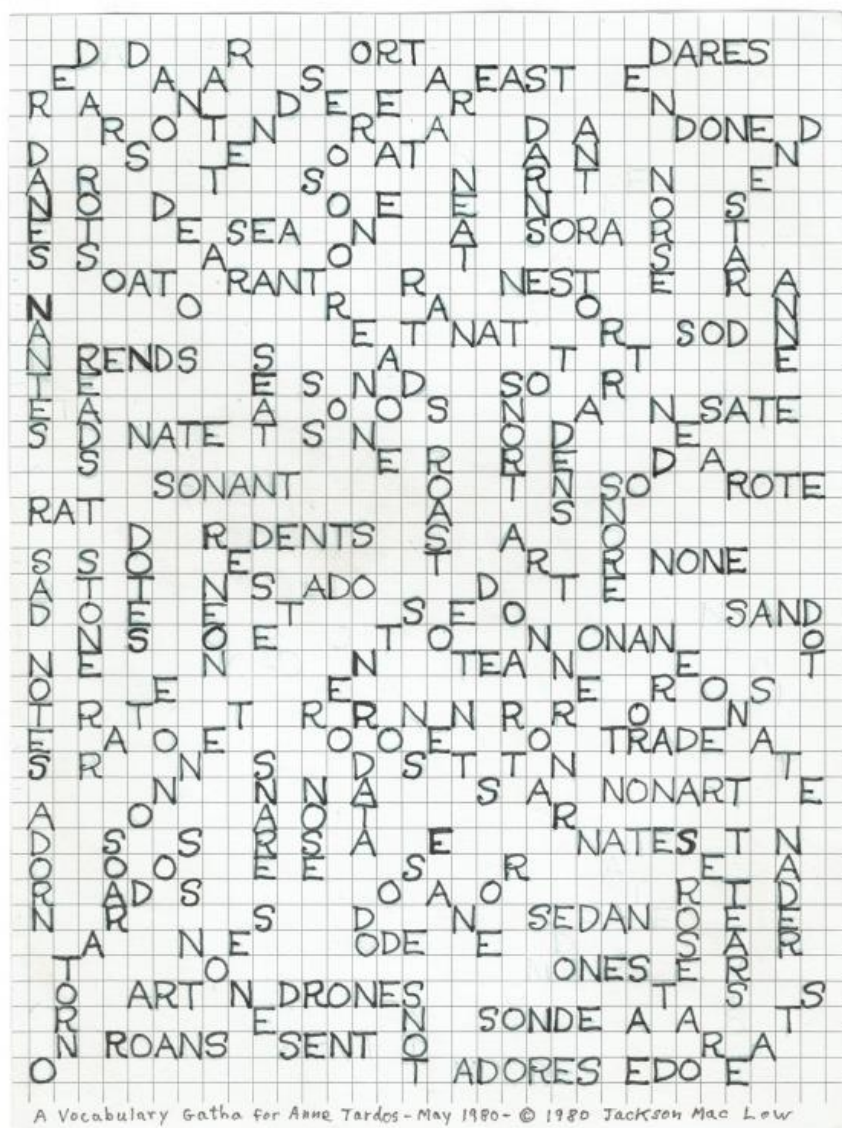 D D R ORT DARES
E A A S A EAST E
R A N D E E R N
R O T N R A D A DONED
D S E O AT A N N
A R T S N R T N E
N O D O E E N O S
E T E SEA N A SORA R T
S S A O T S A
OAT RANT R NEST E R A
N O R A O N
A E T NAT R SOD N
N RENDS S A T T E
T E E S N D SO R
E A A O O S N A N SATE
S D NATE T S N O D E
S E R R E D A
SONANT O T N SO ROTE
RAT A S N
D R DENTS S A O
S S O E T R R NONE
A T T N S ADO D T E
D O E E T S E O SAND
N S O E T O N ONAN O
N E N N TEA N E T
O E E E R O S
T R T T R R N N R R O N
E A O E O O O E O TRADE A
S R N N S D S T T N T
N N N A S A NONART E
A O A O T R
D S S R S A E NATES T N
O O O E E S R E A
R AD S O A O R T D
N R S D N SEDAN O E E
A N E ODE E S A R
T O ONES E R
O ART N DRONES T S S
R E N SONDE A A T
N ROANS SENT O R A
O T ADORES EDO E
A Vocabulary Gatha for Anne Tardos - May 1980 - © 1980 Jackson Mac Low